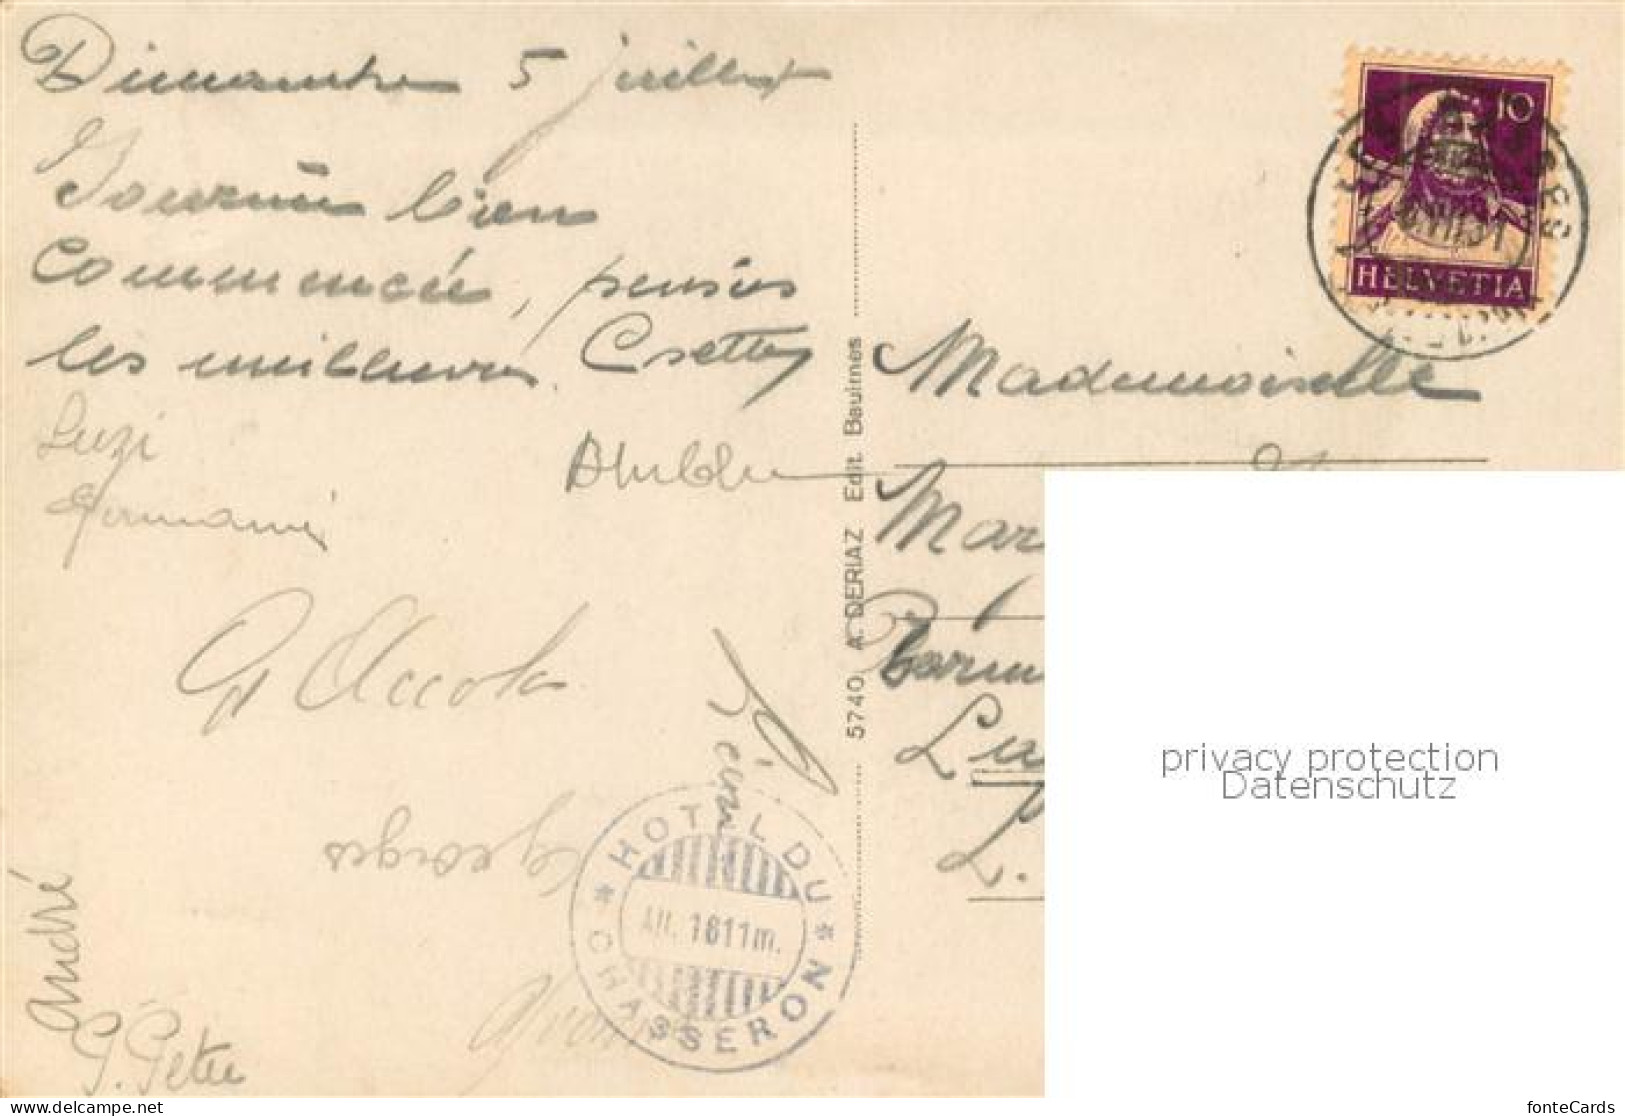 Dimanche 5 juillet
Journée bien
commencée, pensées
les meilleures. Csetty
Suzi
Germaine
G. Accola
Rémy
Georges
André
P. Peter
Yvonne
HOTEL DU
* CHASSERON *
Alt. 1611 m.
5740 A. DERIAZ Edit. Baulmes
10
HELVETIA
Mademoiselle
Mar
L.
privacy protection
Datenschutz
fonteCards